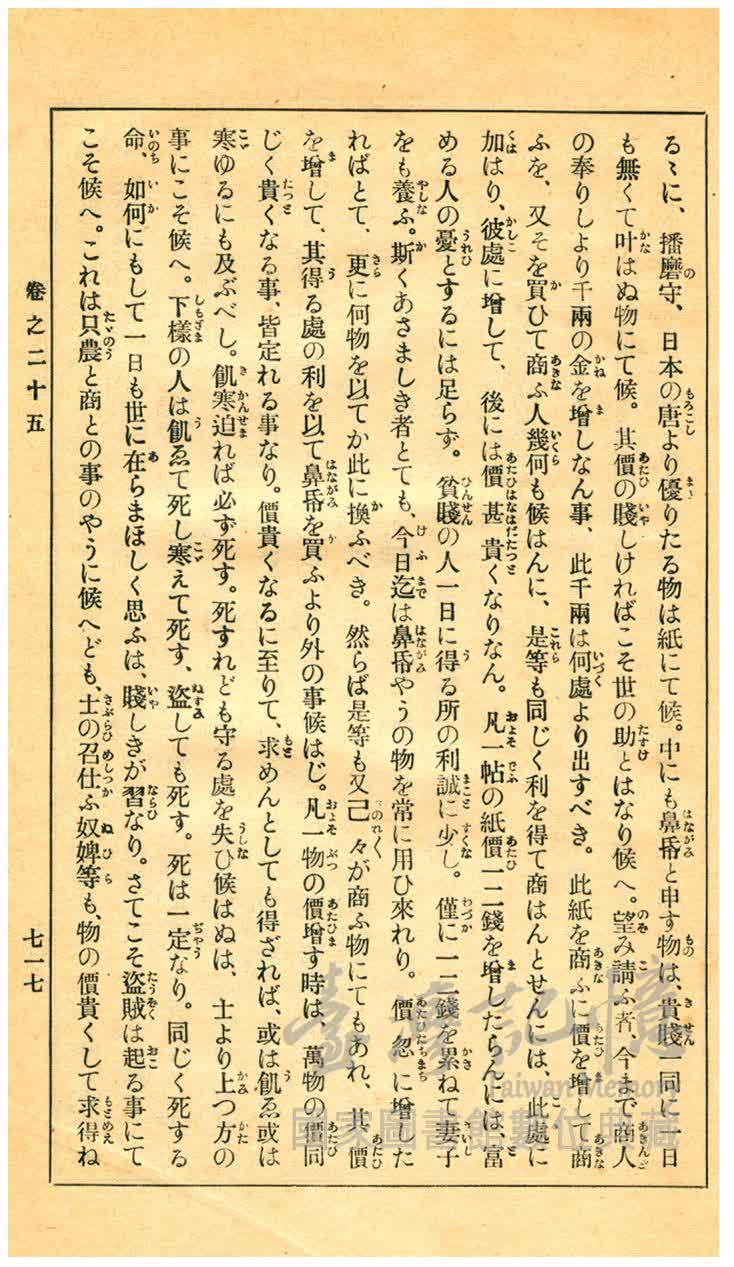 るゝに、播磨守、日本の唐より優りたる物は紙にて候。中にも鼻帋と申す物は、貴賤一同に一日
も無くて叶はぬ物にて候。其價の賤しければこそ世の助とはなり候へ。望み請ふ者、今まで商人
の奉りしより千兩の金を增しなん事、此千兩は何處より出すべき。此紙を商ふに價を增して商
ふを、又そを買ひて商ふ人幾何も候はんに、是等も同じく利を得て商はんとせんには、此處に
加はり、彼處に增して、後には價甚貴くなりなん。凡一帖の紙價一二錢を增したらんには、富
める人の憂とするには足らず。貧賤の人一日に得る所の利誠に少し。僅に一二錢を累ねて妻子
をも養ふ。斯くあさましき者とても、今日迄は鼻帋やうの物を常に用ひ來れり。價忽に增した
ればとて、更に何物を以てか此に換ふべき。然らば是等も又己々が商ふ物にてもあれ、其價
を增して、其得る處の利を以て鼻帋を買ふより外の事候はじ。凡一物の價增す時は、萬物の價同
じく貴くなる事、皆定れる事なり。價貴くなるに至りて、求めんとしても得ざれば、或は飢ゑ或は
寒ゆるにも及ぶべし。飢寒迫れば必ず死す。死すれども守る處を失ひ候はぬは、士より上つ方の
事にこそ候へ。下樣の人は飢ゑて死し寒えて死す、盜しても死す。死は一定なり。同じく死する
命、如何にもして一日も世に在らまほしく思ふは、賤しきが習なり。さてこそ盜賊は起る事にて
こそ候へ。これは只農と商との事のやうに候へども、士の召仕ふ奴婢等も、物の價貴くして求得ね
卷之二十五
七一七
臺灣記憶
Taiwan Memory
國家圖書館數位典藏